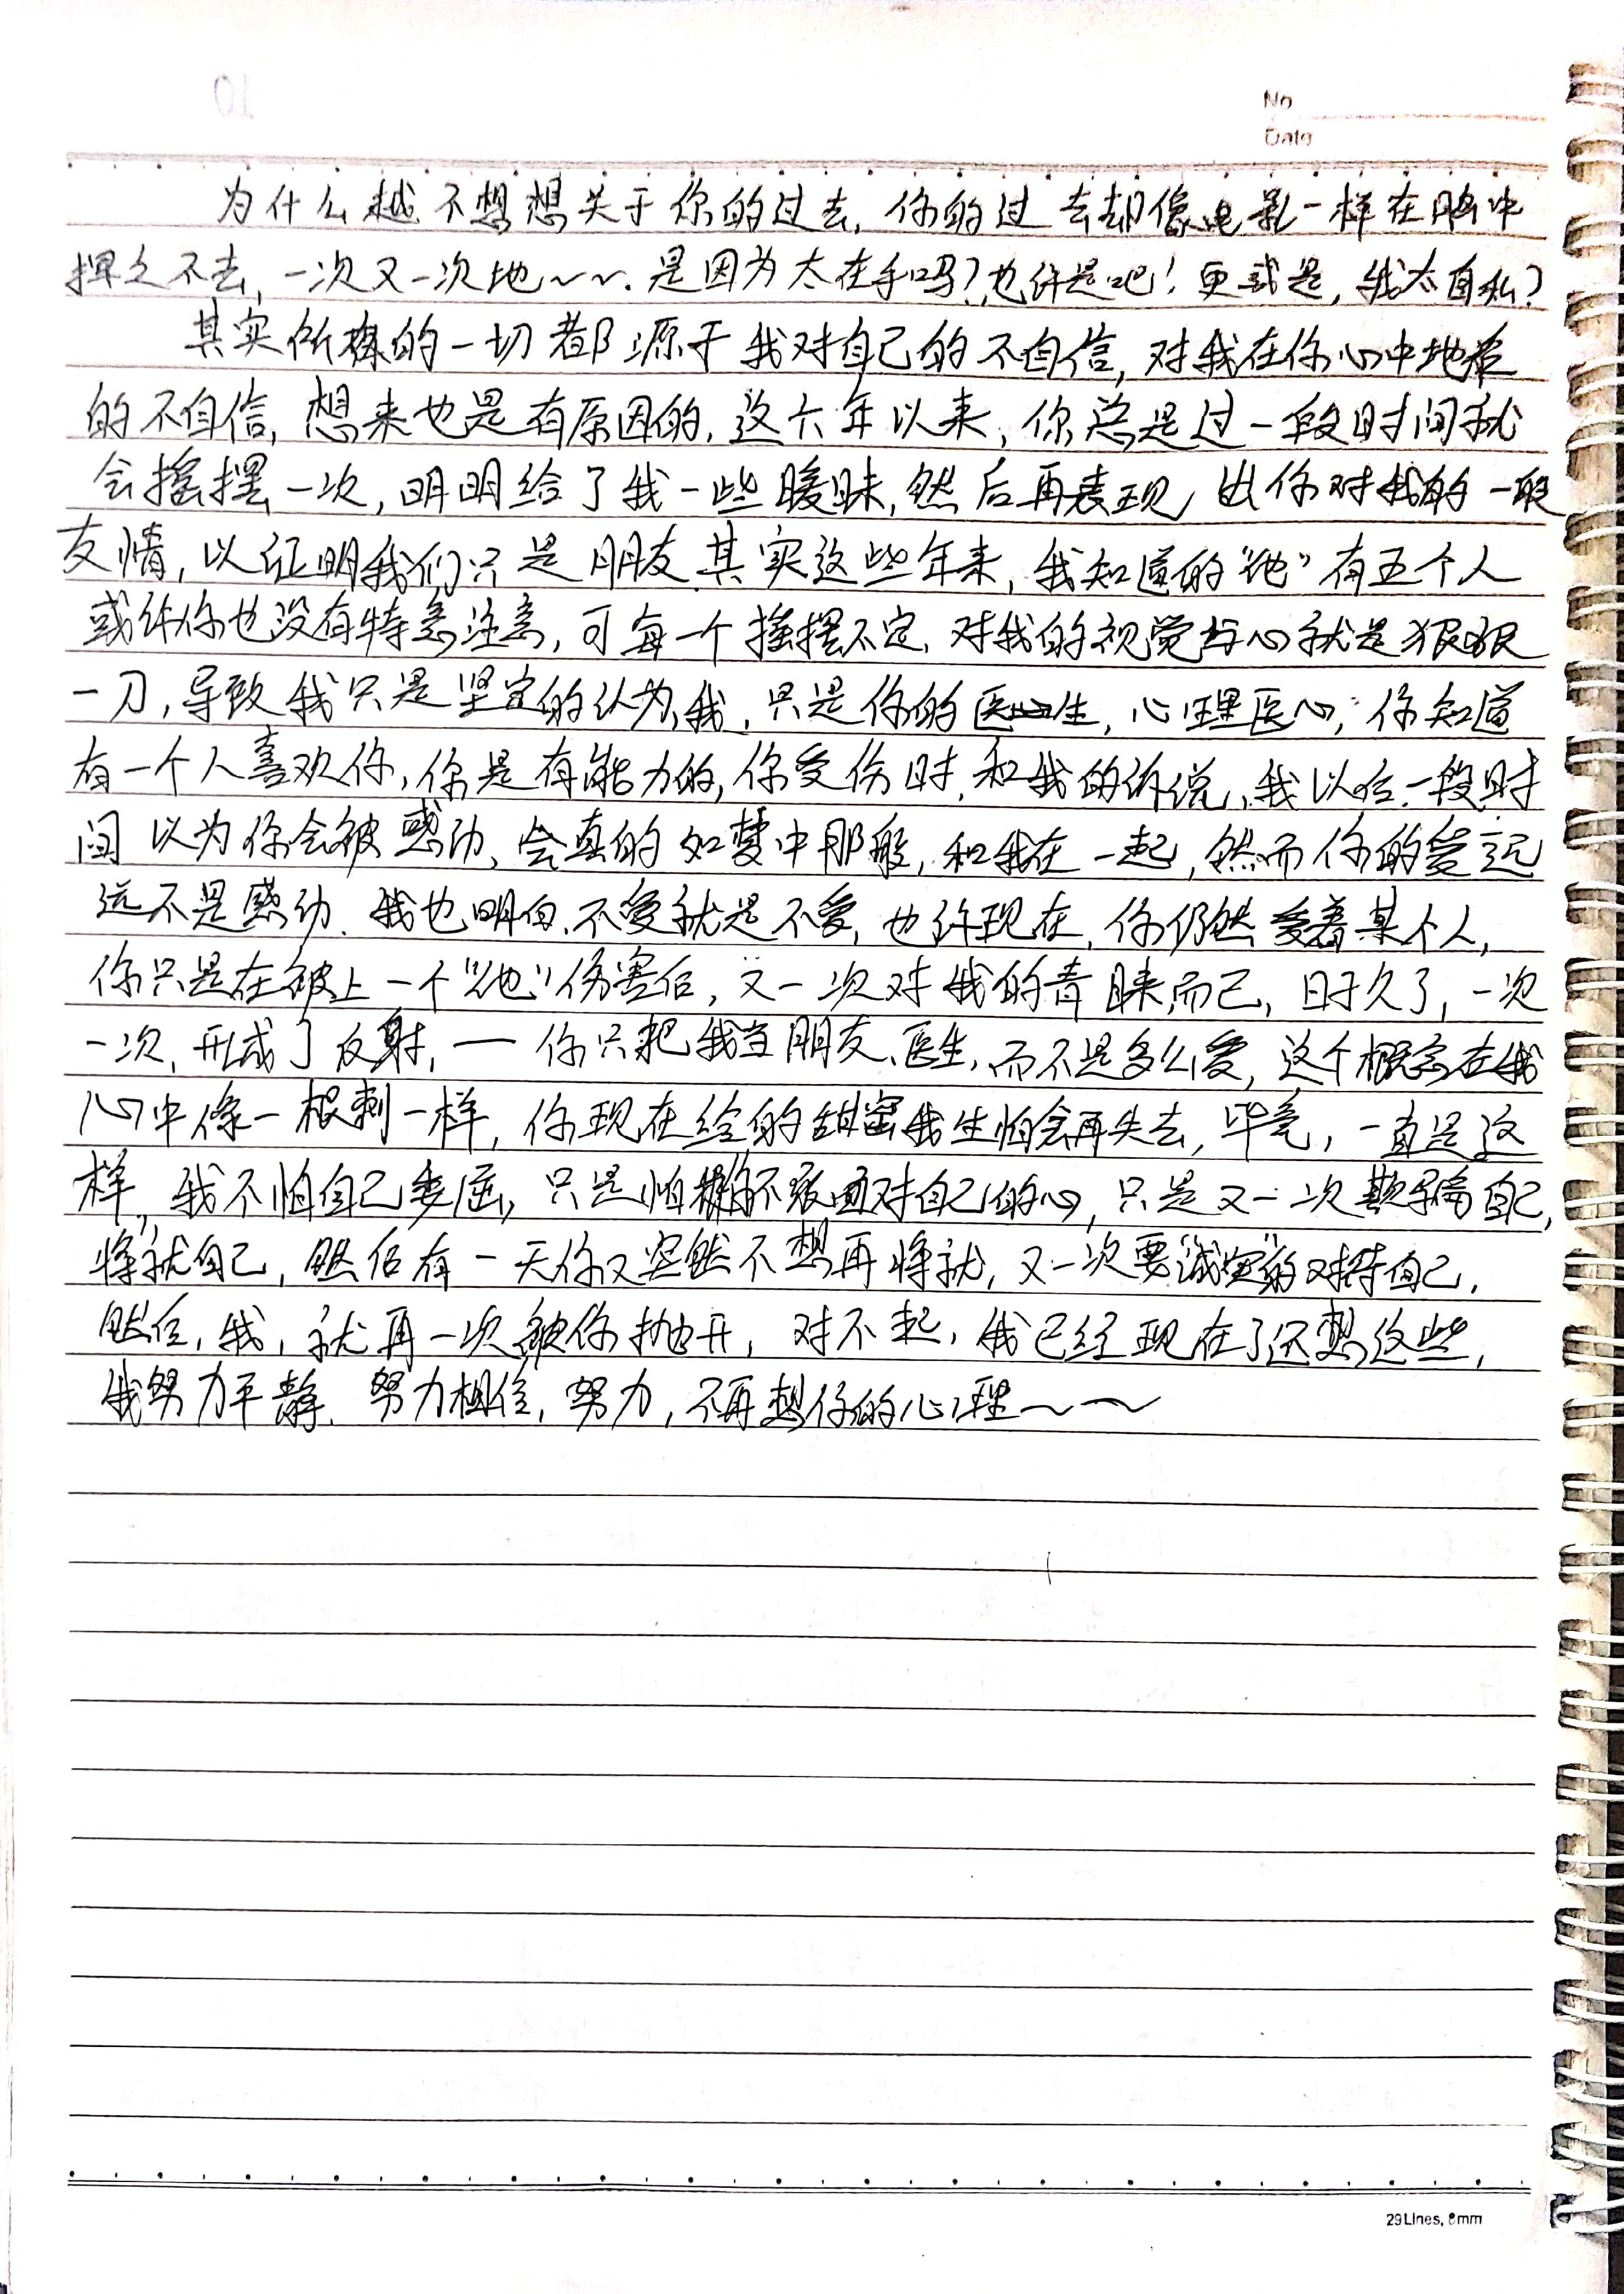 No
Date
为什么越不想想关于你的过去，你的过去却像电影一样在脑中
挥之不去，一次又一次地～～. 是因为太在乎吗？也许是吧！更或是，我太自私？
其实所有的一切都源于我对自己的不自信，对我在你心中地位
的不自信，想来也是有原因的，这六年以来，你总是过一段时间就
会摇摆一次，明明给了我一些暧昧，然后再表现出你对我的一般
友情，以证明我们只是朋友.其实这些年来，我知道的“他”有五个人
或许你也没有特意注意，可每一个摇摆不定，对我的视觉与心就是狠狠
一刀，导致我只是坚定的认为，我，只是你的医生，心理医心，你知道
有一个人喜欢你，你是有能力的，你受伤时，和我的诉说，我以后一段时
间以为你会被感动、会真的如梦中那般，和我在一起，然而你的爱远
远不是感动. 我也明白，不爱就是不爱，也许现在，你仍然爱着某个人，
你只是在被上一个“他”伤害后，又一次对我的青睐而已，时久了，一次
一次，形成了反射，— 你只把我当朋友、医生，而不是多么爱，这个概念在我
心中像一根刺一样，你现在给的甜蜜我生怕会再失去，毕竟，一直是这
样，我不怕自己委屈，只是怕你不敢面对自己的心，只是又一次欺骗自己，
“将就”自己，然后有一天你又突然不想再将就，又一次要“诚实”的对待自己.
然后，我，就再一次被你抛开，对不起，我已经现在了还想这些，
我努力平静，努力相信，努力，不再想你的心理～～
29Lines, 8mm